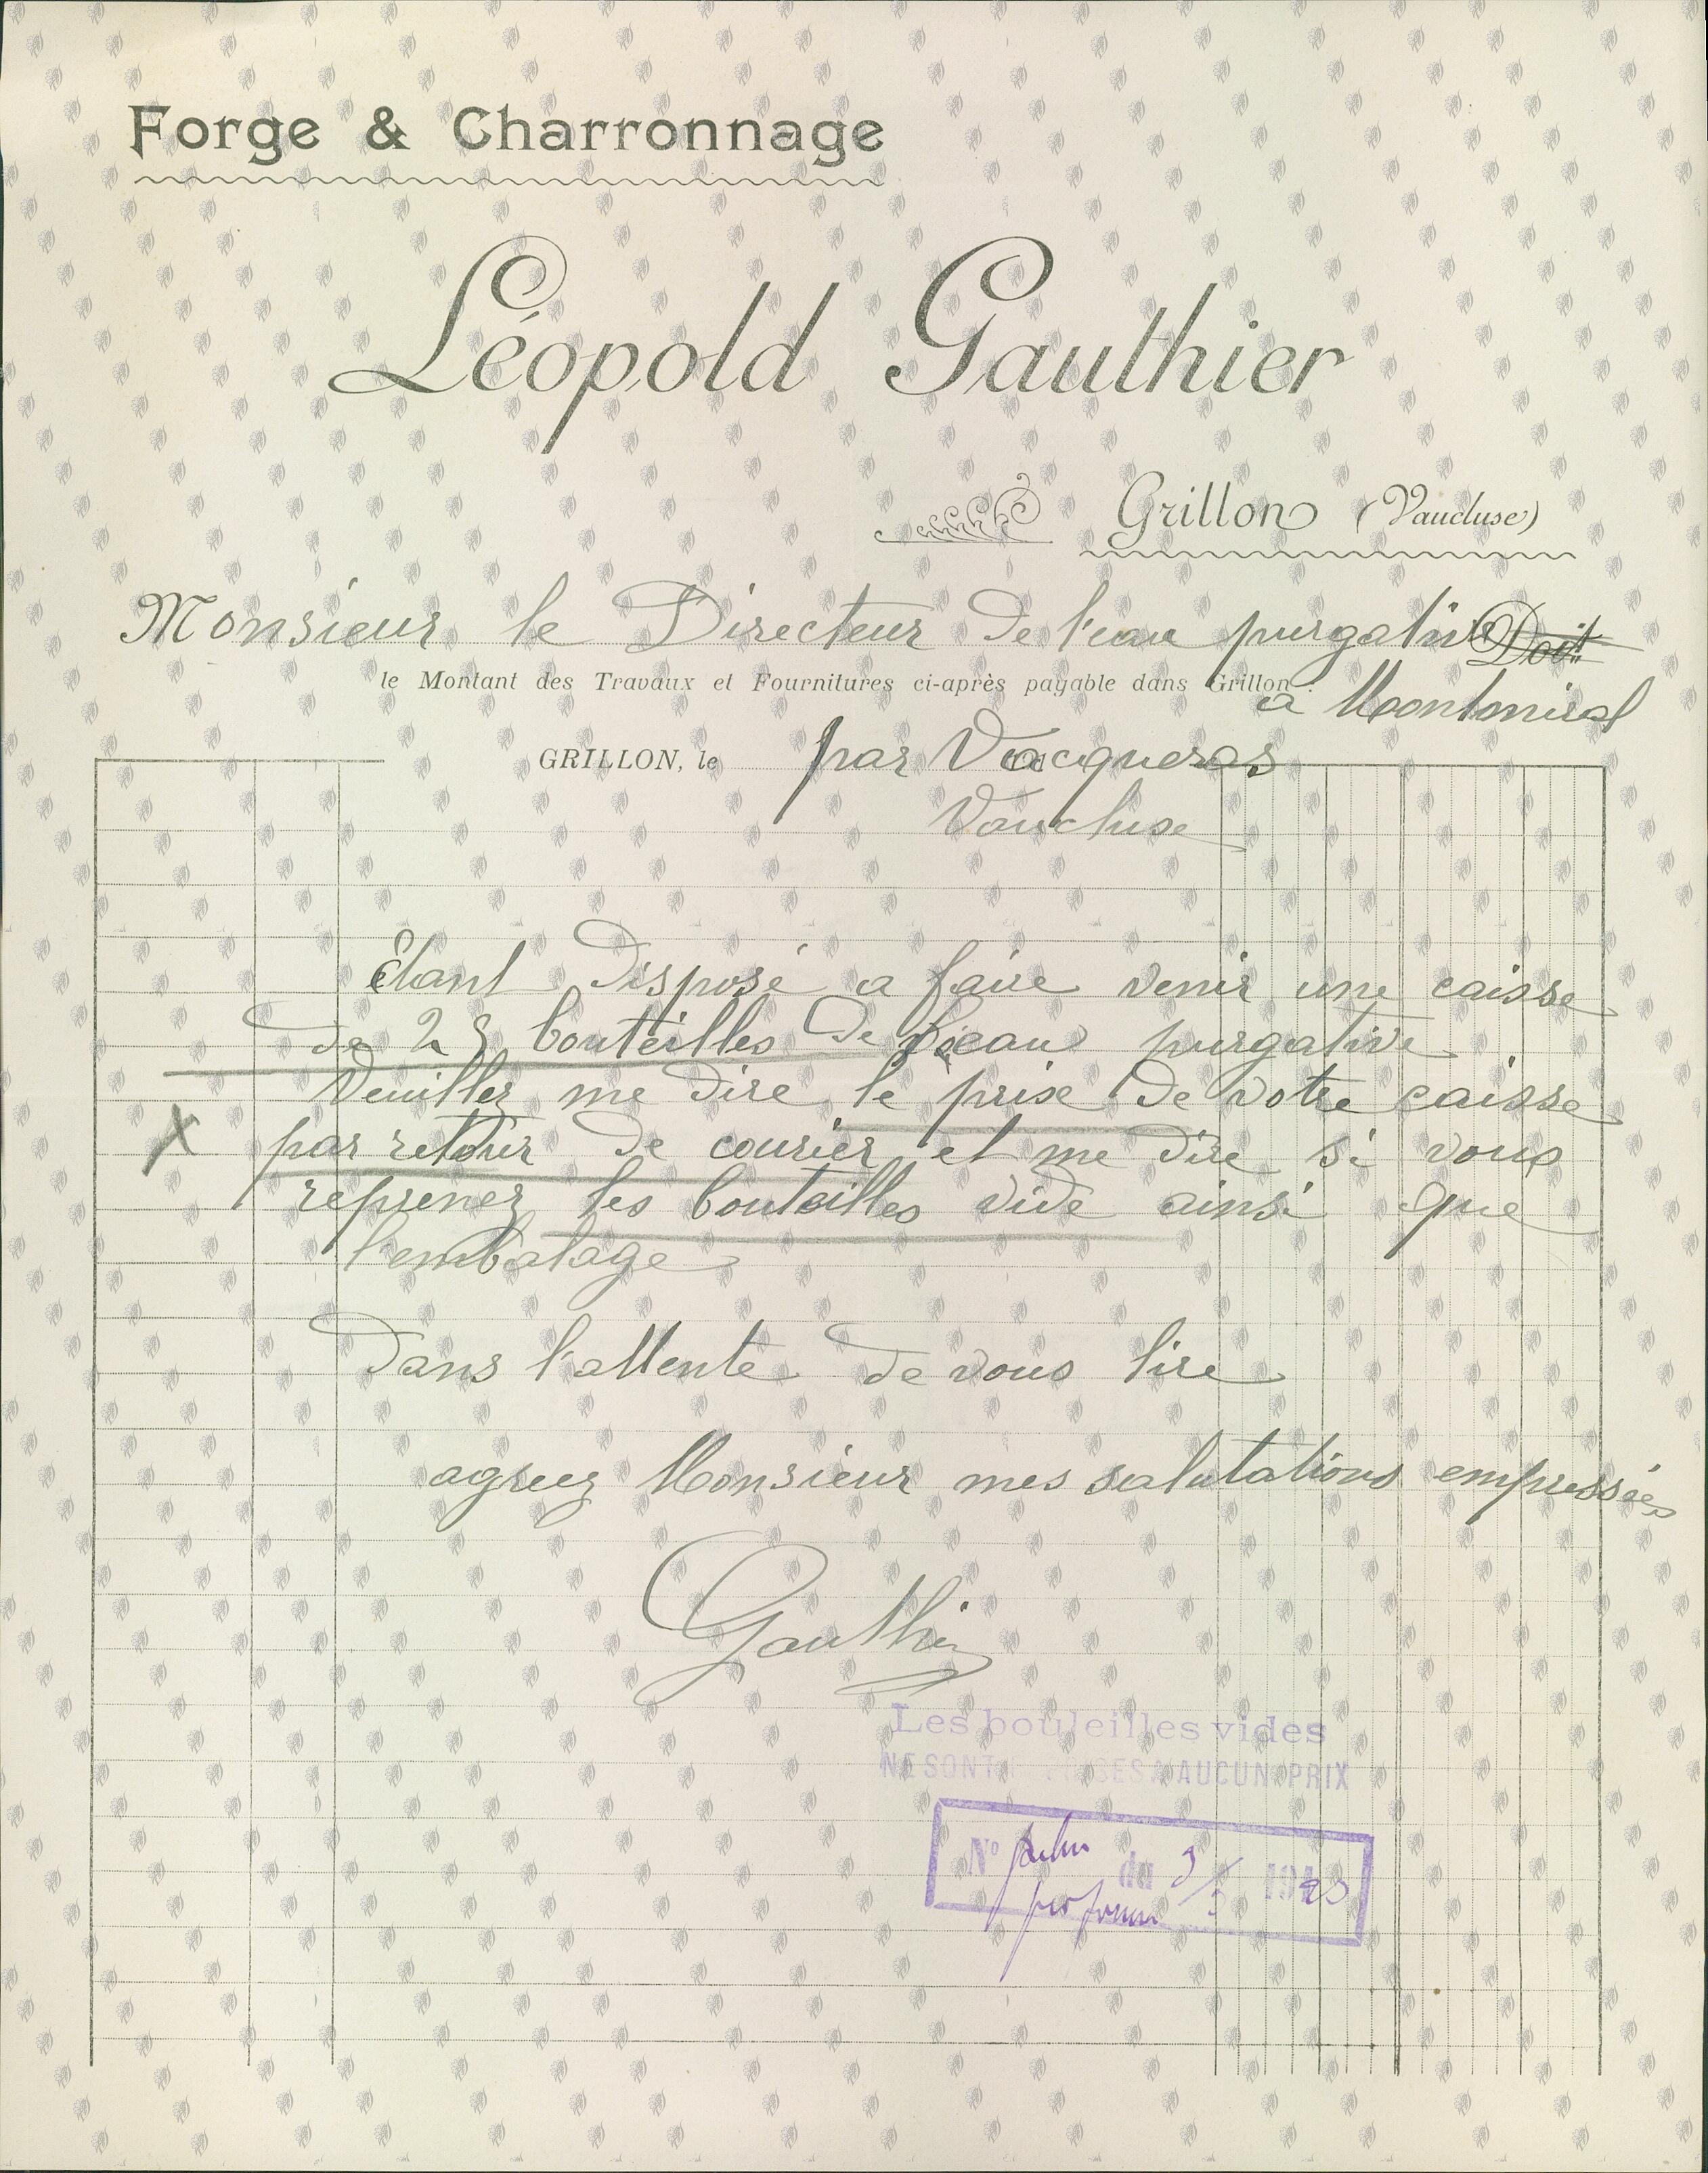 Forge & Charronnage
Léopold Gauthier
Grillon (Vaucluse)
Monsieur le Directeur de l'eau purgative Doit
le Montant des Travaux et Fournitures ci-après payable dans Grillon :
à Montmiral
GRILLON, le par Vacqueras
Vaucluse
Étant disposé a faire venir une caisse
de 25 bouteilles de eau purgative
Veuillez me dire le prix de votre caisse
par retour de courier et me dire si vous
reprenez les bouteilles vide ainsi que
l'embalage
Dans l'attente de vous lire
agreez Monsieur mes salutations empressées
Gauthier
Les bouteilles vides
NE SONT AUCUN PRIX
N° du 3/3 1923
pro forma